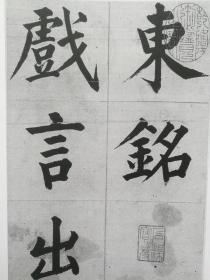 東銘
戲言出